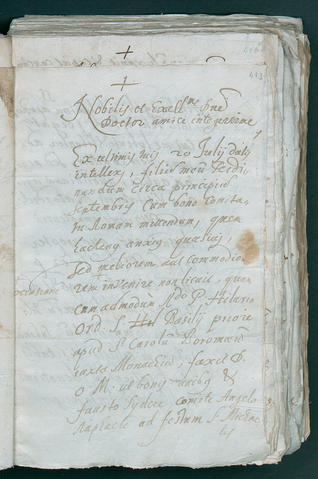 Nobilis et Excell.me Dne
Doctor amice integerrime
Ex ultimis meis 20 Julij datis
intellex, filiū meū Ferdi
nandum circa principiū
Septembris cum bono comita
tu Romam mittendum, quem
hactenq anxiq quæsivi,
sed meliorem aut commodio
rem invenire non licuit, quam
occasionem
cum admodum Rdo P. Hilario
Ord: S. Basilij priore
apud S. Carolū Boromæū
iuxta Monachiū, faxit D.
O. M. ut bonq
fausto sydere comite Angelo
Raphaele ad festum S. Michae
lis
413